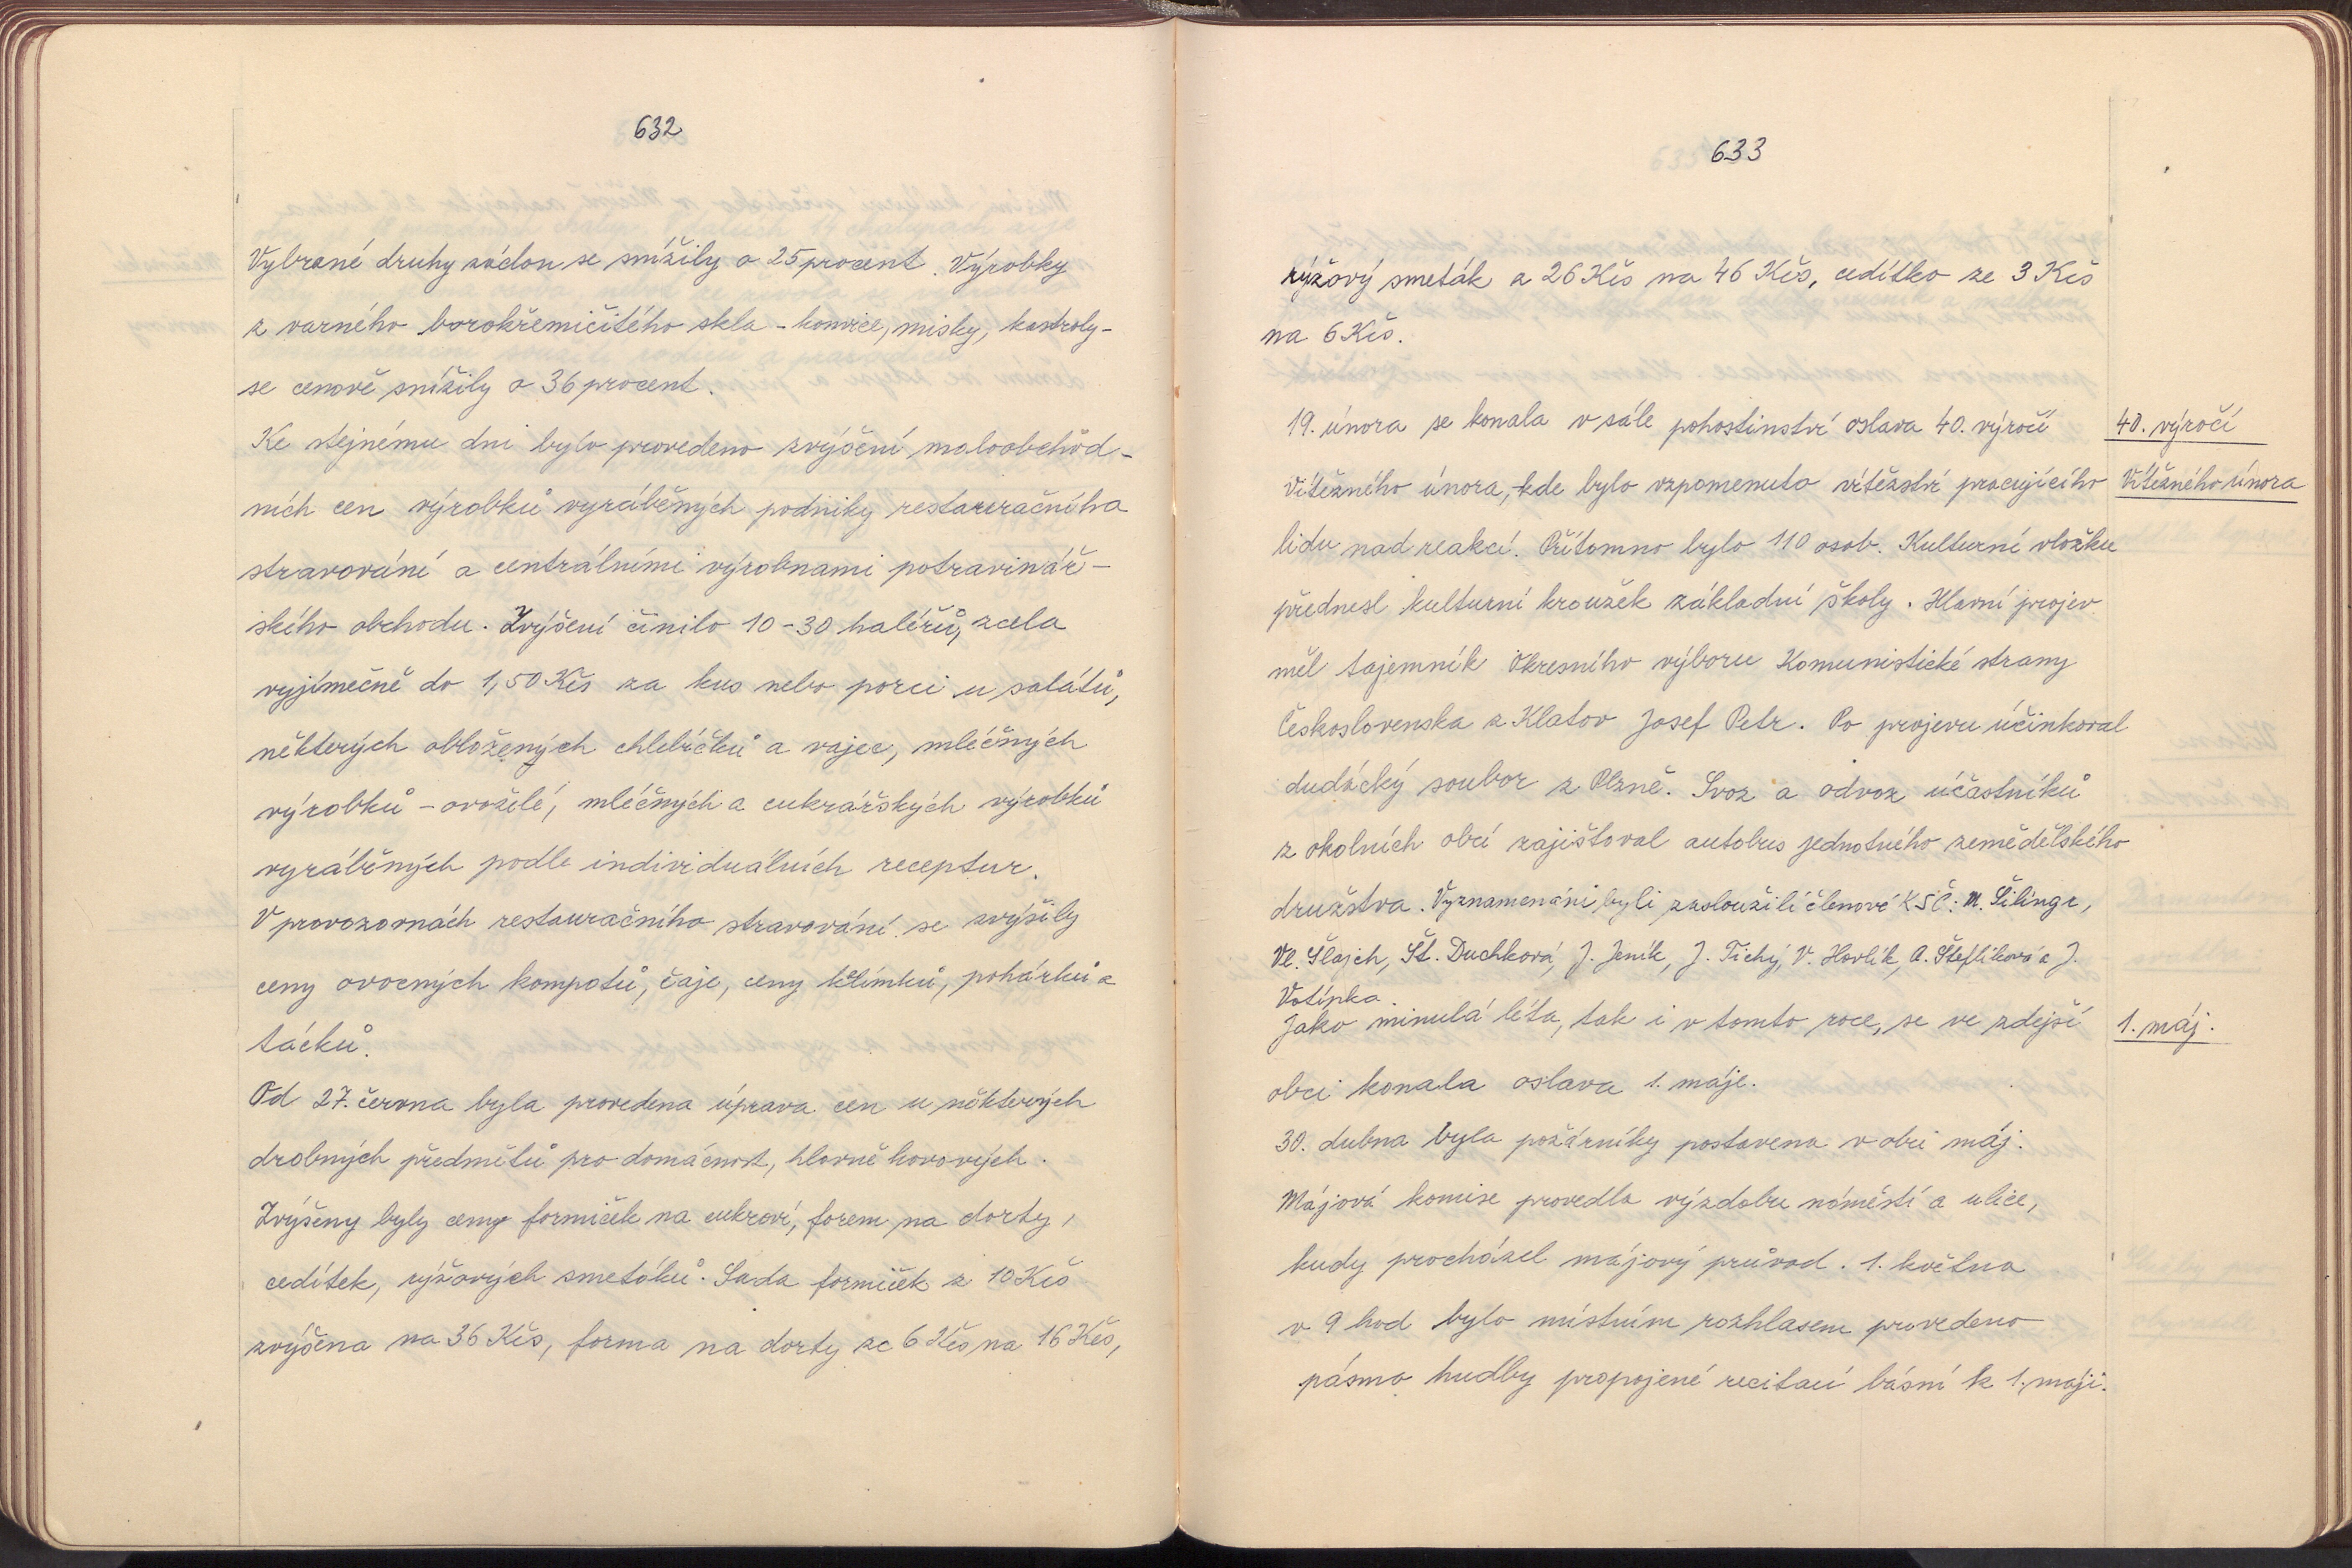 632
Vybrané druhy záclon se snížily o 25 procent. Výrobky
z varného borokřemičitého skla - konvice, misky, kastroly -
se cenově snížily o 36 procent.
Ke stejnému dni bylo provedeno zvýšení maloobchod-
ních cen výrobků vyráběných podniky restauračního
stravování a centrálními výrobnami potravinář-
ského obchodu. Zvýšení činilo 10-30 haléřů, zcela
vyjímečně do 1,50 Kčs za kus nebo porci u salátů,
některých obložených chlebíčků a vajec, mléčných
výrobků - ovoželé, mléčných a cukrářských výrobků
vyráběných podle individuálních receptur.
V provozovnách restauračního stravování se zvýšily
ceny ovocných kompotů, čaje, ceny kelímků, pohárků a
tácků.
Od 27. června byla provedena úprava cen u některých
drobných předmětů pro domácnost, hlavně kovových.
Zvýšeny byly ceny formiček na cukroví, forem na dorty,
cedítek, rýžových smetáků. Sada formiček z 10 Kčs
zvýšena na 36 Kčs, forma na dorty ze 6 Kčs na 16 Kčs,
633
rýžový smeták z 26 Kčs na 46 Kčs, cedítko ze 3 Kčs
na 6 Kčs.
19. února se konala v sále pohostinství oslava 40. výročí
40. výročí
Vítězného února, kde bylo vzpomenuto vítězství pracujícího
Vítězného února
lidu nad reakcí. Přítomno bylo 110 osob. Kulturní vložku
přednesl kulturní kroužek základní školy. Hlavní projev
měl tajemník Okresního výboru Komunistické strany
Československa z Klatov Josef Petr. Po projevu účinkoval
dudácký soubor z Plzně. Svoz a odvoz účastníků
z okolních obcí zajišťoval autobus jednotného zemědělského
družstva. Vyznamenáni byli zasloužilí členové KSČ: M. Šilinge,
Vl. Šlajch, Št. Duchková, J. Jeník, J. Tichý, V. Havlík, A. Šteflíková a J.
Votípka.
Jako minulá léta, tak i v tomto roce, se ve zdejší
1. máj.
obci konala oslava 1. máje.
30. dubna byla požárníky postavena v obci máj.
Májová komise provedla výzdobu náměstí a ulice,
kudy procházel májový průvod. 1. května
v 9 hod bylo místním rozhlasem provedeno
pásmo hudby propojené recitací básní k 1. máji.